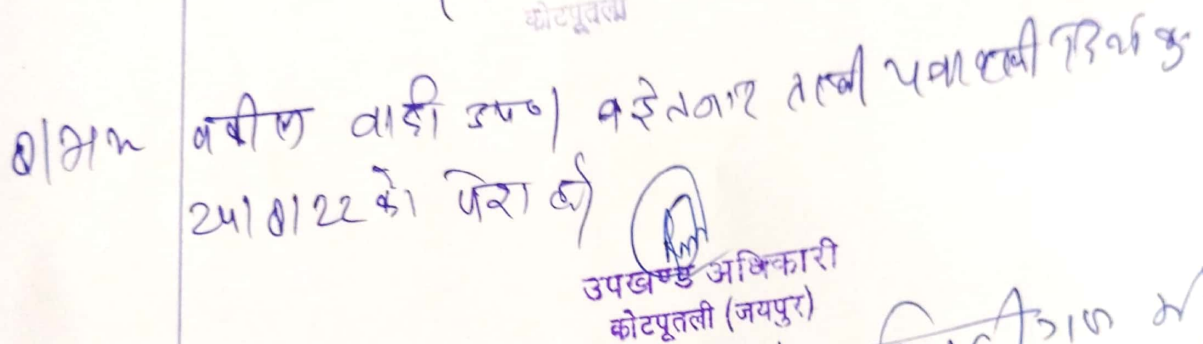 कोटपूतली
वकील वादी उप०। वइेतजार तलबी पत्रावली दिनांक
24/8/22 को पेश हो
उपखण्ड अधिकारी
कोटपूतली (जयपुर)